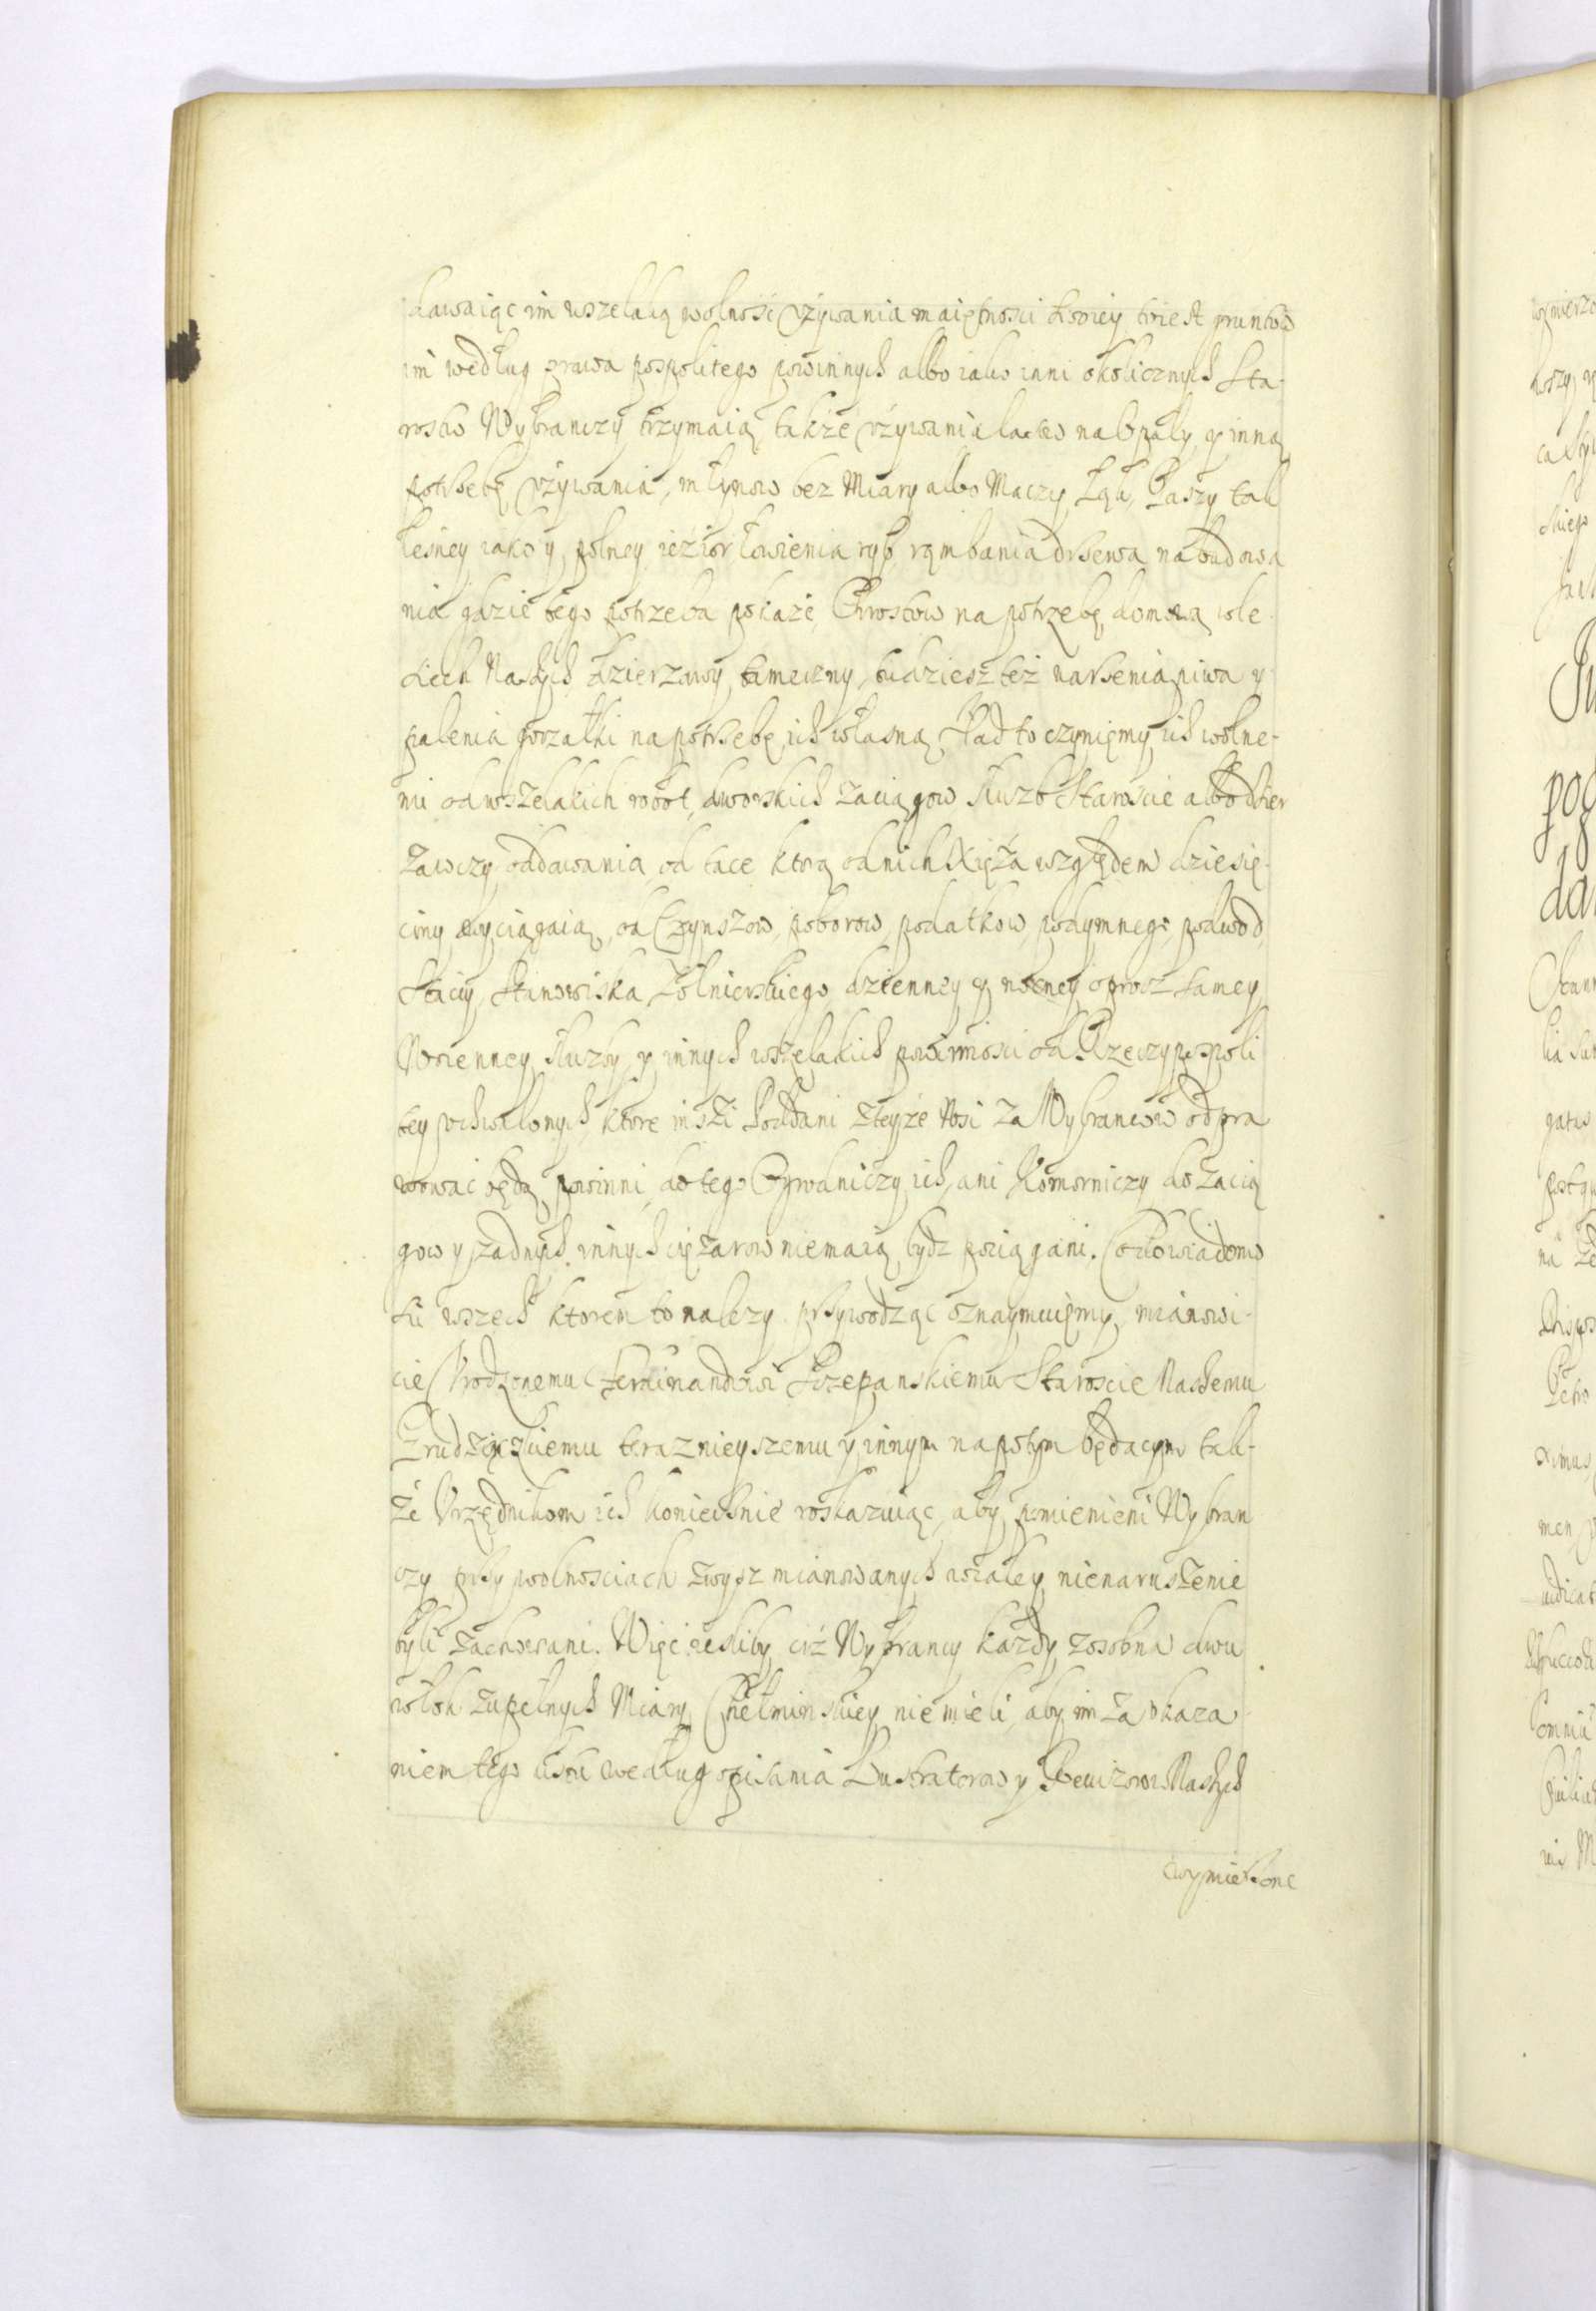 dawaiąc im wszelaką wolność vżywania maiętnosci swoiey to iest gruntow
im według prawa pospolitego powinnych albo iako inni okolicznych Sta-
rostw Wybranczy trzymaią, także vżywania lasow na Opały y inną
potrzebę vżywania, młynow bez Miary albo Maczy, Łąk, Paszy tak
leśney iako y polney ieźior łowienia ryb rąmbania drzewa na budowa
nia gdzie tego potrzeba pokaże Chrostow na potrzebę domową w le
siech Naszych dzierzawy tameczny, tudziesz też warzenia piwa y
palenia gorzałki na potrzebę ich własną. Nad to czyniemy ich wolne-
mi od wszelakich robot dworskich zaciągow służb Staroscie albo dzier
żawczy oddawania od tace ktorą od nich Xięża względem dziesię-
ciny wyciągaią, od Czynszow, poborow, podatkow, podymnego, podwod
Staciy, Stanowiska Żołnierskiego dzienney y nocney oprocz samey
Woienney służby y innych wszelakich powinności od Rzeczypospoli
tey vchwalonych, ktore inszi Poddani z teyże Wsi za Wybrancow odpra
wować będą powinni, do tego Ogrodniczy ich, ani Komorniczy do zacią
gow y żadnych innych ciężarow nie maią bydz pociągani. Co do wiadomo
sci wszech ktorem to należy przywodząc oznaymuiemy, mianowi-
cie Vrodzonemu Ferdinandowi Szczepanskiemu Staroscie Naszemu
teraznieyszemu y innym napotym będącym tak-
że Vrzędnikom ich koniecznie roskazuiąc, aby pomienieni Wybran
czy przy wolnosciach zwysz mianowanych wcaley nienaruszenie
byli zachowani. Więc iesliby ciż Wybrancy każdy zosobna dwu
włok zupełnych Miary Chełminskiey nie mieli, aby im za okaza-
niem tego listu według opisania Lustratorow y Rewizorow Naszych
wymierzone